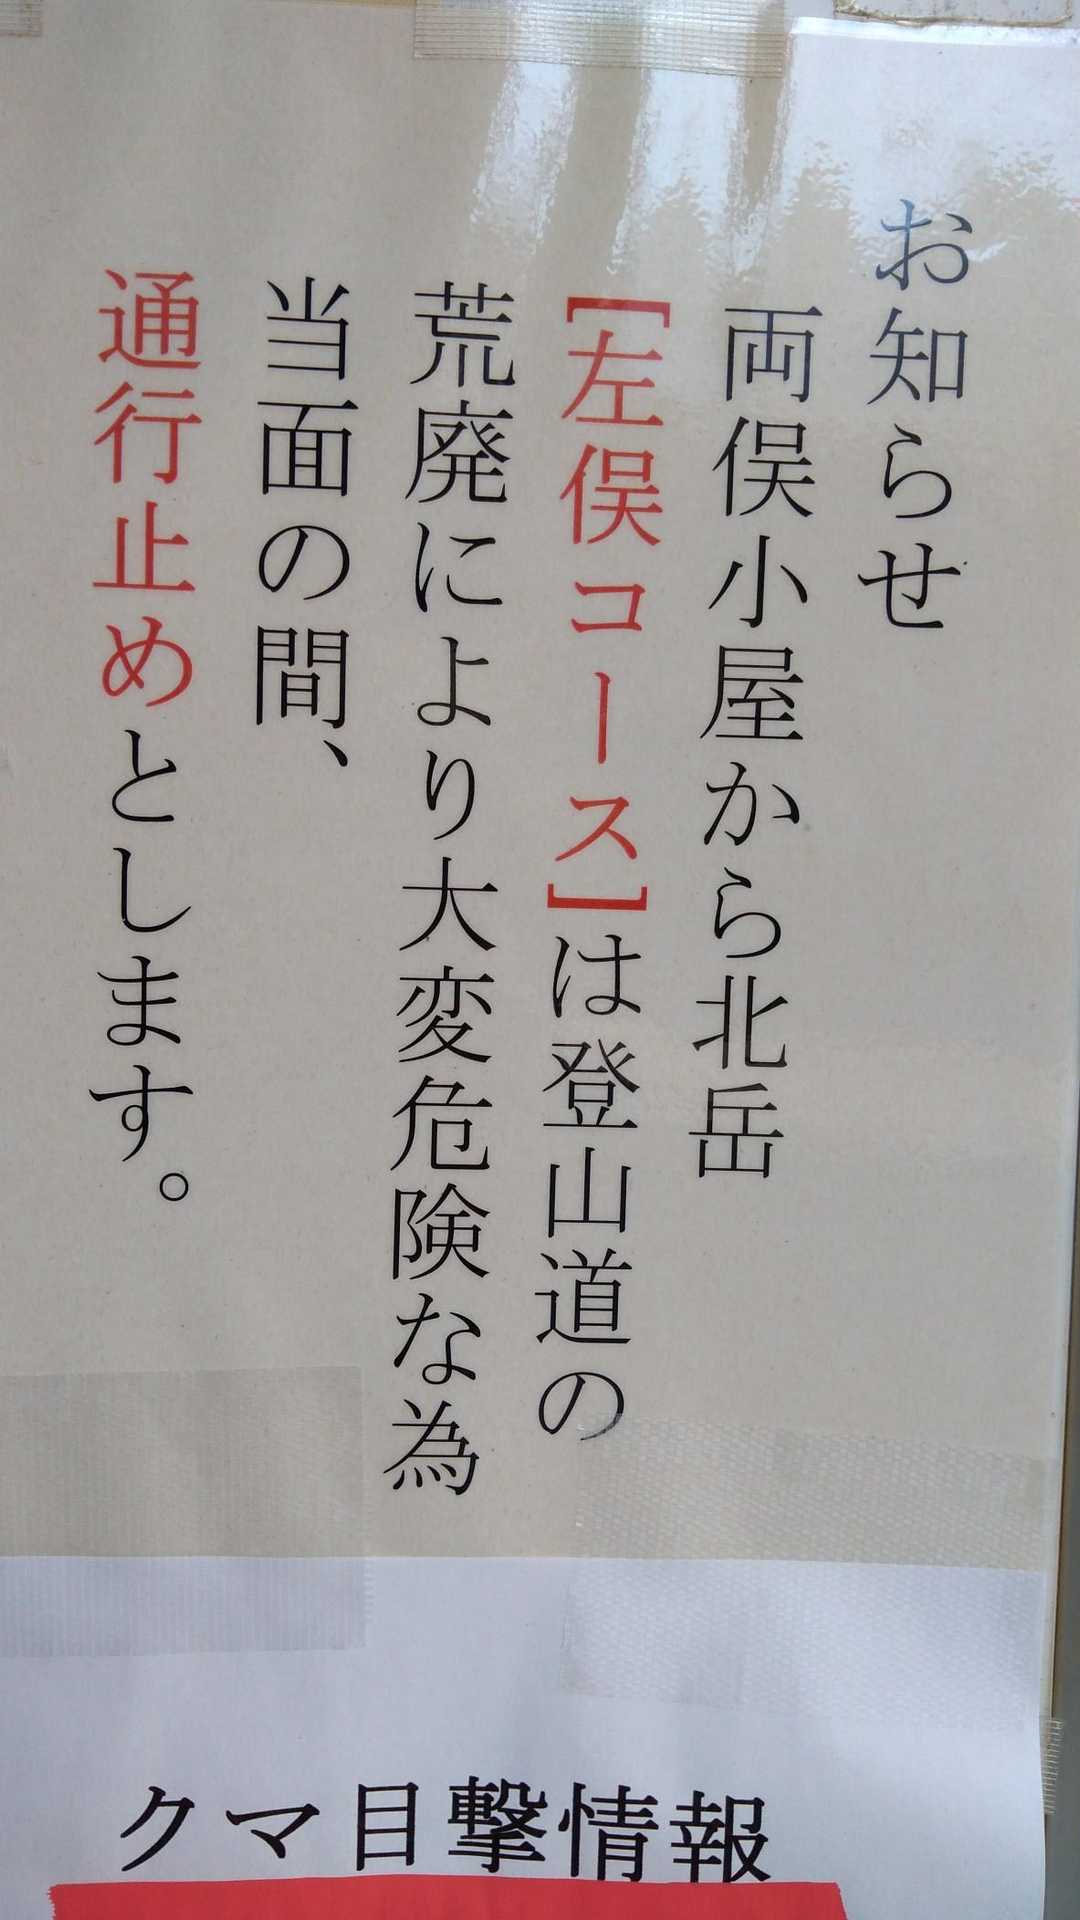 お知らせ
両俣小屋から北岳
[左俣コース]は登山道の
荒廃により大変危険な為
当面の間、
通行止めとします。
クマ目撃情報